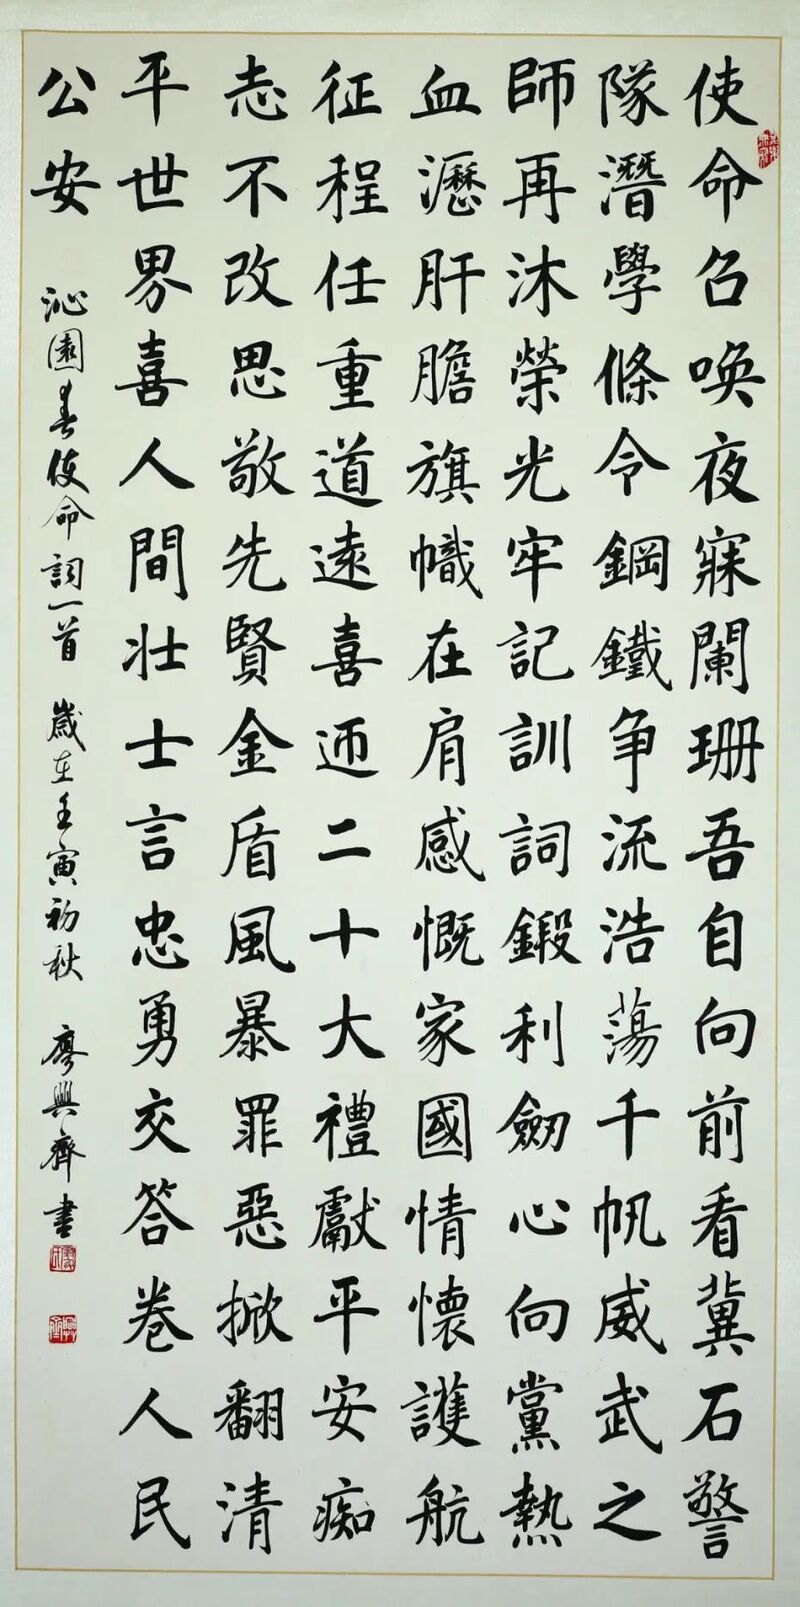 使命召唤夜寐闌珊吾自向前看冀石警
隊潛學條令鋼鐵争流浩蕩千帆威武之
師再沐榮光牢記訓詞鍛利劒心向黨熱
血瀝肝膽旗幟在肩感慨家國情懷護航
征程任重道遠喜迊二十大禮獻平安痴
志不改思敬先賢金盾風暴罪惡掀翻清
平世界喜人間壮士言忠勇交答卷人民
公安
沁園春使命詞一首 歲在壬寅初秋 廖興齊書